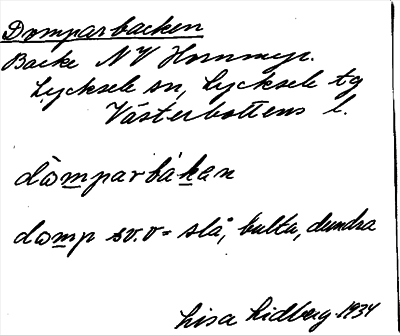 Domparbacken
Backe NV Hornmyr.
Lycksele sn, Lycksele tg
Västerbottens l.
dòmparbákan
domp sv.v = slå, bulta, dundra
Lisa Lidberg 1934